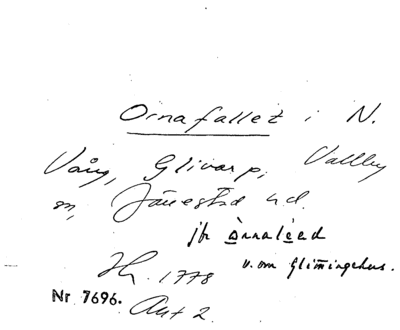 Ornafallet i N.
Vång, Glivarp, Vallby
sn, Järrestad hd.
jfr ònnaléed
v. om Glimmingehus.
Jh. 1778
Nr 7696. Akt 2